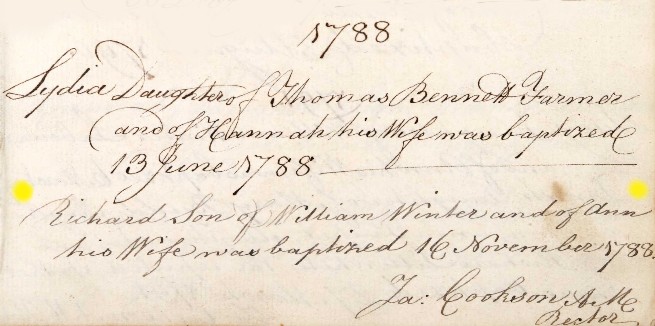 1788
Lydia Daughter of Thomas Bennett Farmer
and of Hannah his Wife was baptized
13 June 1788
Richard Son of William Winter and of Ann
his Wife was baptized 16 November 1788.
Ja: Cookson A.M.
Rector